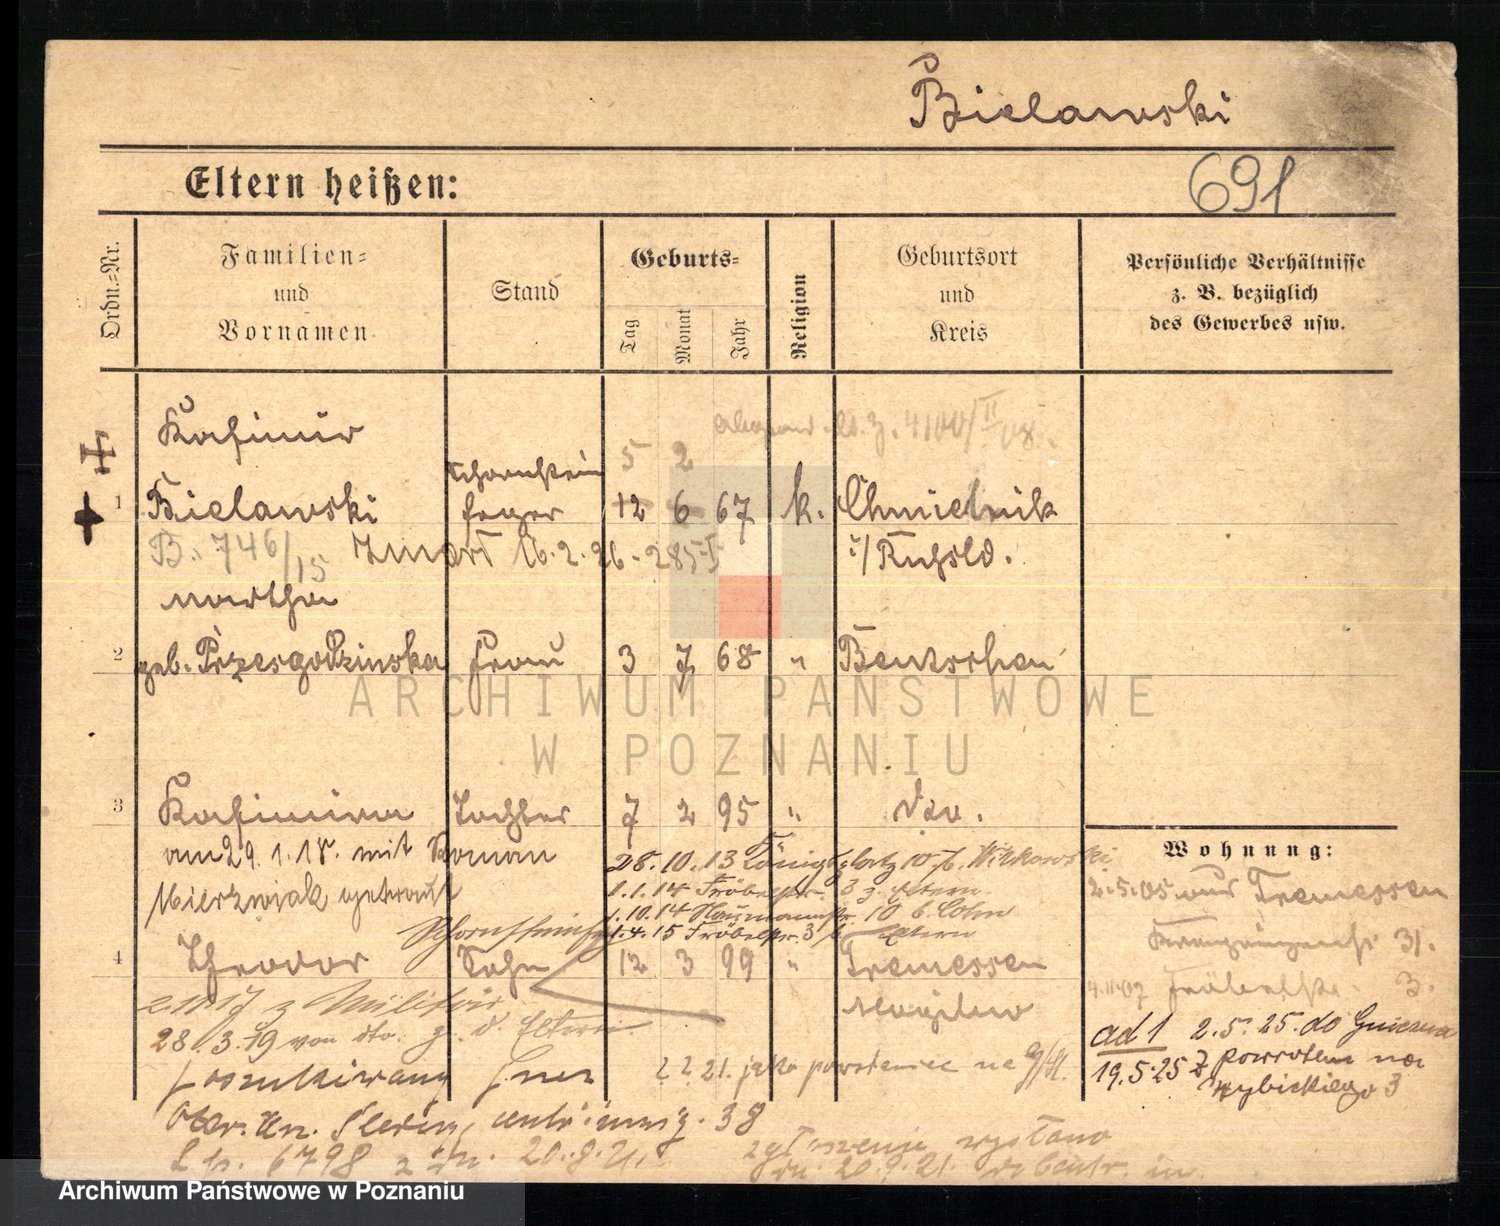 Bielawski
691
Eltern heißen:
Ordn.-Nr.
Familien-
und
Vornamen
Stand
Geburts-
Tag
Monat
Jahr
Religion
Geburtsort
und
Kreis
Persönliche Verhältnisse
z. B. bezüglich
des Gewerbes usw.
Kasimir
5 2
Schornstein
1 Bielawski feger 12 6 67 k. Chmielnik
B. 746/15 Zmarł 16.2.26
i/ Rußld.
Martha
2 geb. Przesgodzinska Frau 3 7 68 " Bentschen
ARCHIWUM PAŃSTWOWE
W POZNANIU
3 Kasimira Tochter 7 2 95 " dto.
am 29.1.18. mit Roman
Mierzwiak getraut
28.10.13 Königsplatz 10 b. Witkowski
1.1.14 Fröbelstr. 3 z. Eltern
1.10.14 Naumannstr. 10 b. Cohn
1.4.15 Fröbelstr. 3 b. Eltern
4 Theodor Sohn 12 3 99 " Tremessen
Mogilno
z. Militär
28.3.19 von dto. z. d. Eltern
poszukiwany przez
2 2 21. jako powstaniec na G/Śl.
38
L. 6798 z dn. 20.8.21.
zgłoszenie wysłano
dn. 20.9.21.
Wohnung:
2.5.05 aus Tremessen
31.
4.11.07 Fröbelstr. 3.
ad 1 2.5.25. do Gniezna
19.5.25 z powrotem na
Wybickiego 3
Archiwum Państwowe w Poznaniu